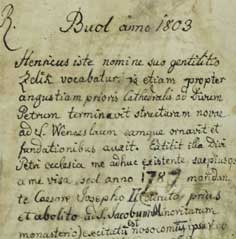 R. Buol anno 1803
Henricus iste nomine suo gentilitio
Zdik vocabatur, is etiam propter
angustiam prioris Cathedralis ad Divum
Petrum terminavit structuram novae
ad S. Wenceslaum eamque ornavit et
fundationibus auxit. Extitit illa Divi
Petri ecclesia me adhuc existente saepius
a me visa, sed anno 1787 mandan
te Caesare Josepho II prius
et abolito ad S. Jacobum Minoritarum
monasterio) nosocomij